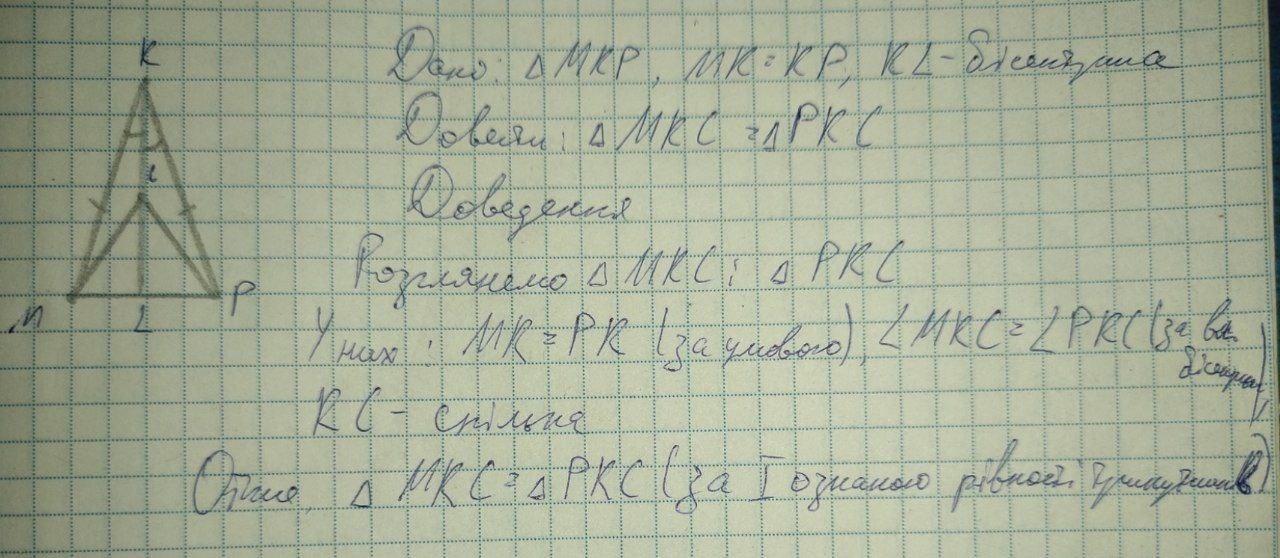 K
C
M
L
P
Дано: △MKP, MK=KP, KL-бісектриса
Довести: △MKC=△PKC
Доведення
Розглянемо △MKC і △PKC
У них: MK=PK (за умовою), ∠MKC=∠PKC (за вл. бісектриси),
KC- спільна
Отже, △MKC=△PKC (за I ознакою рівності трикутників)